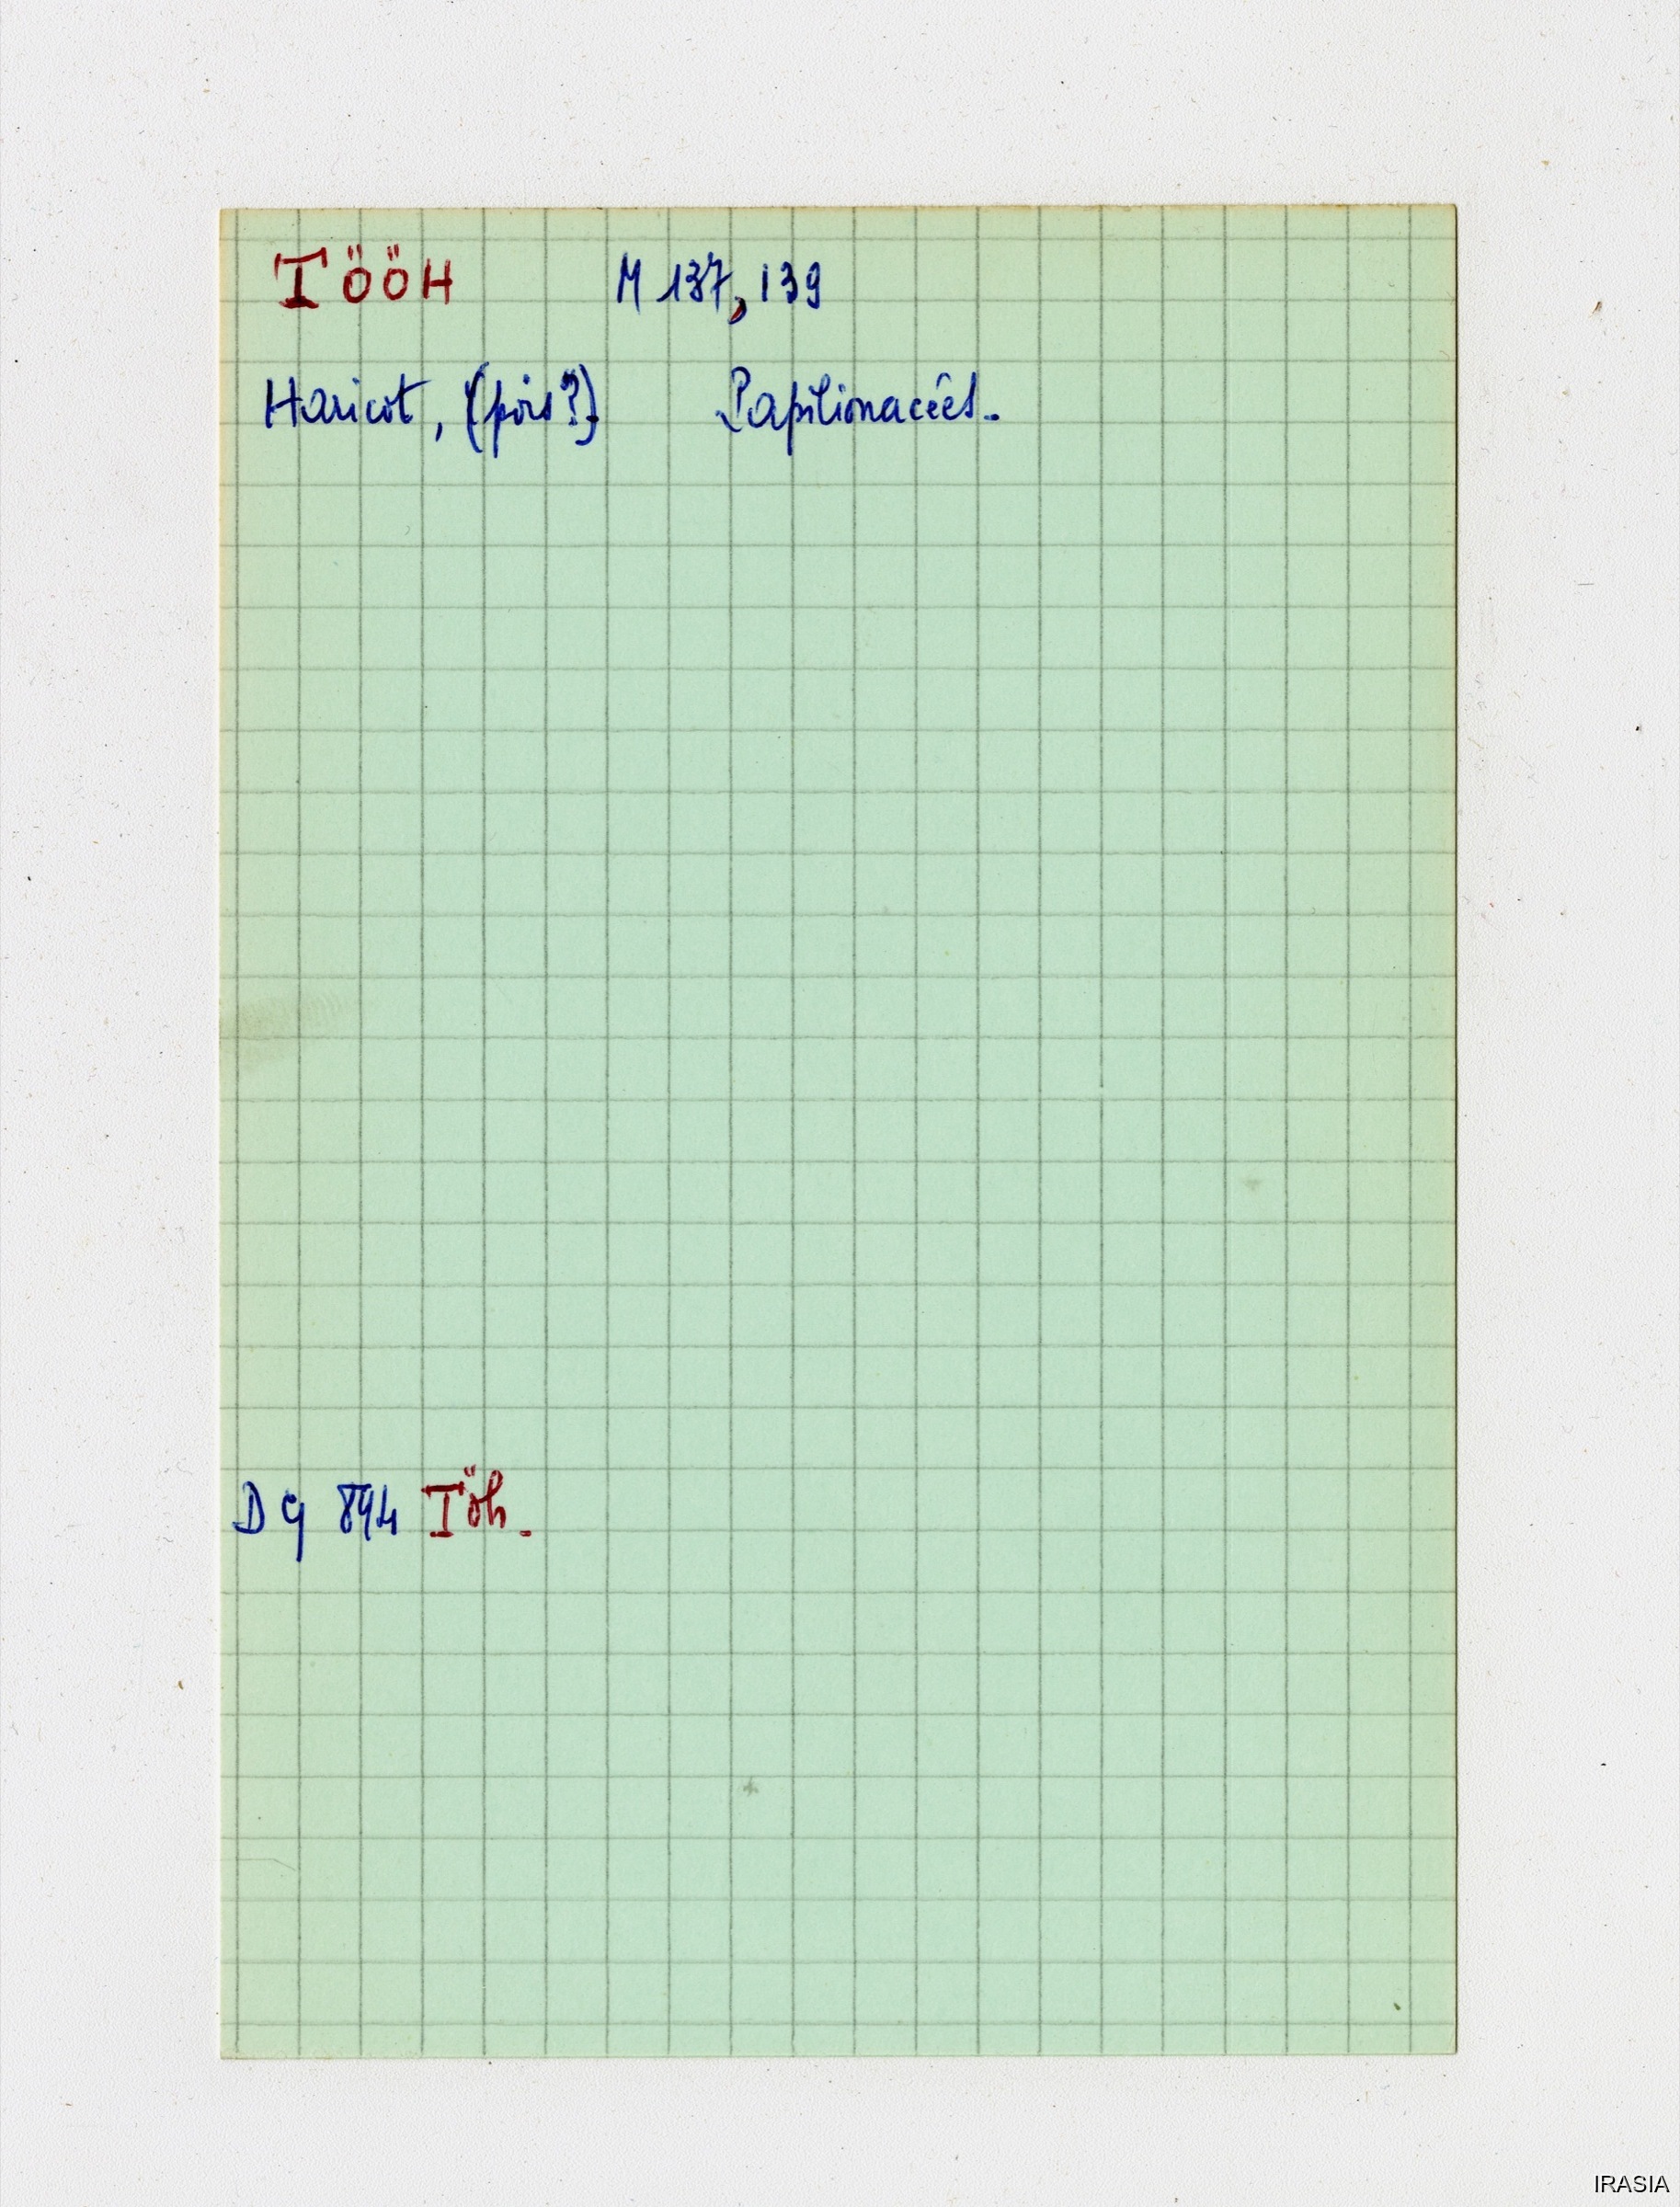 TÖÖH M 137, 139
Haricot, (pois?) Papilionacées.
D 9 894 Töh.
IRASIA